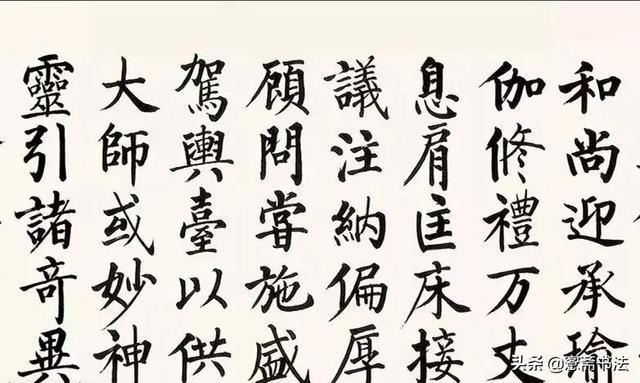 和尚迎承瑜
伽俢禮万丈
息肩匡床接
議注納偏厚
顧問甞施盛
駕輿臺以供
大師或妙神
靈引諸奇異
头条 @憲斋书法